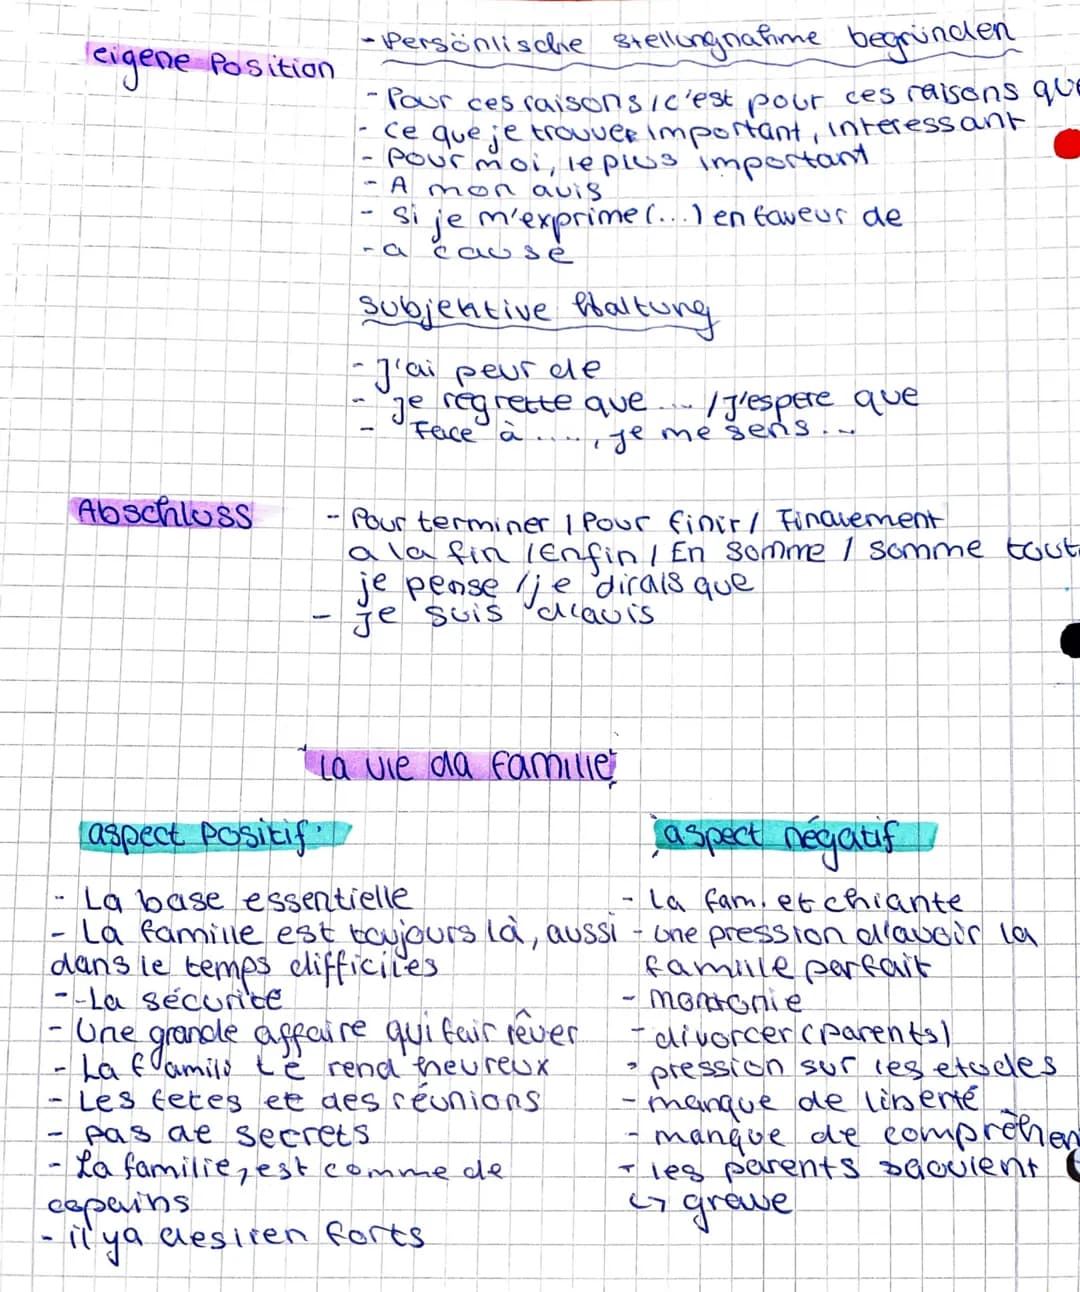 eigene Position
- Persönlische Stellungnahme begründen
- Pour ces raisons / c'est pour ces raisons que
- ce que je trouver important, interessant
- pour moi, le plus important
- A mon avis
- Si je m'exprime (...) en faveur de
- a cause
Subjektive Haltung
- J'ai peur de
- je regrette que ... / J'espere que
- Face à ...., je me sens ...
Abschluss
- Pour terminer / Pour finir / Finalement
a la fin / Enfin / En somme / somme tout
je pense / je dirais que
- je suis d'avis
la vie da famille
aspect positif
- La base essentielle
- La famille est toujours là, aussi
dans le temps difficiles
- La sécurité
- Une grande affaire qui fair rêver
- La famils te rend heureux
- Les fetes et des réunions
- pas de secrets
- La familie, est comme de
copains
- il ya des lien forts
aspect négatif
- la fam. et chiante
- une pression d'avoir la
famille parfait
- monotonie
- divorcer (parents)
- pression sur les etudes
- manque de liberté
- manque de comprêhen
- les parents